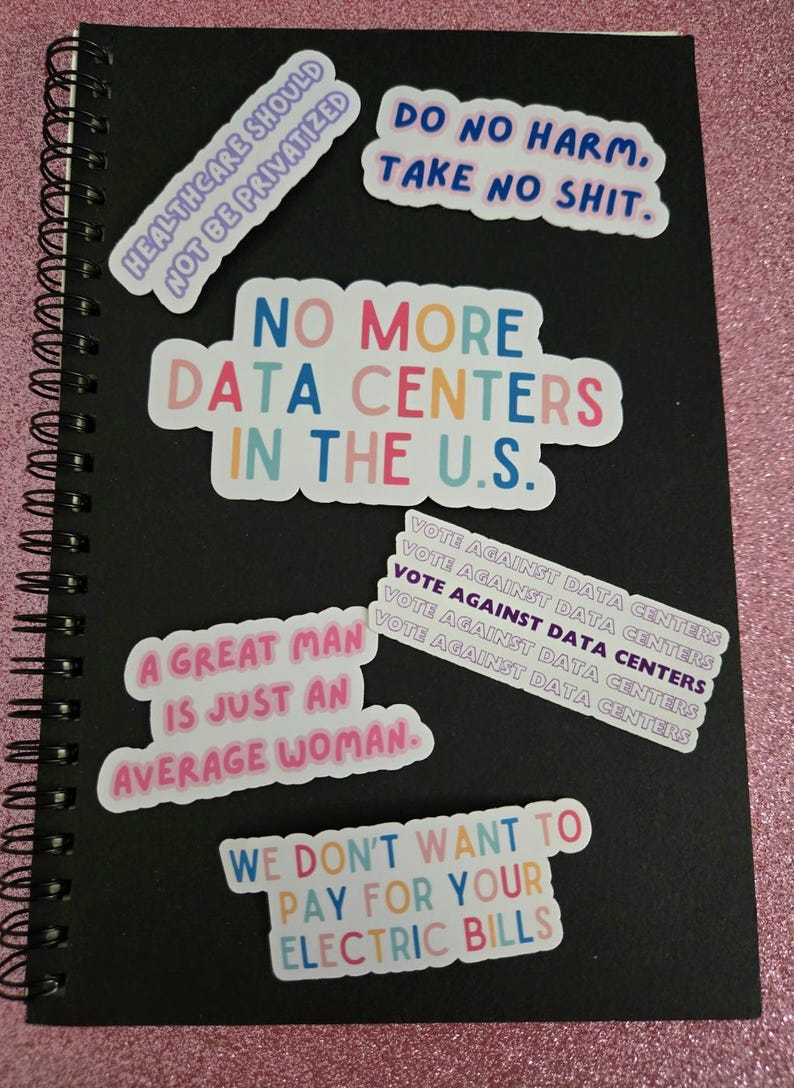 HEALTHCARE SHOULD
NOT BE PRIVATIZED
DO NO HARM,
TAKE NO SHIT.
NO MORE
DATA CENTERS
IN THE U.S.
VOTE AGAINST DATA CENTERS
VOTE AGAINST DATA CENTERS
VOTE AGAINST DATA CENTERS
VOTE AGAINST DATA CENTERS
VOTE AGAINST DATA CENTERS
A GREAT MAN
IS JUST AN
AVERAGE WOMAN.
WE DON'T WANT TO
PAY FOR YOUR
ELECTRIC BILLS